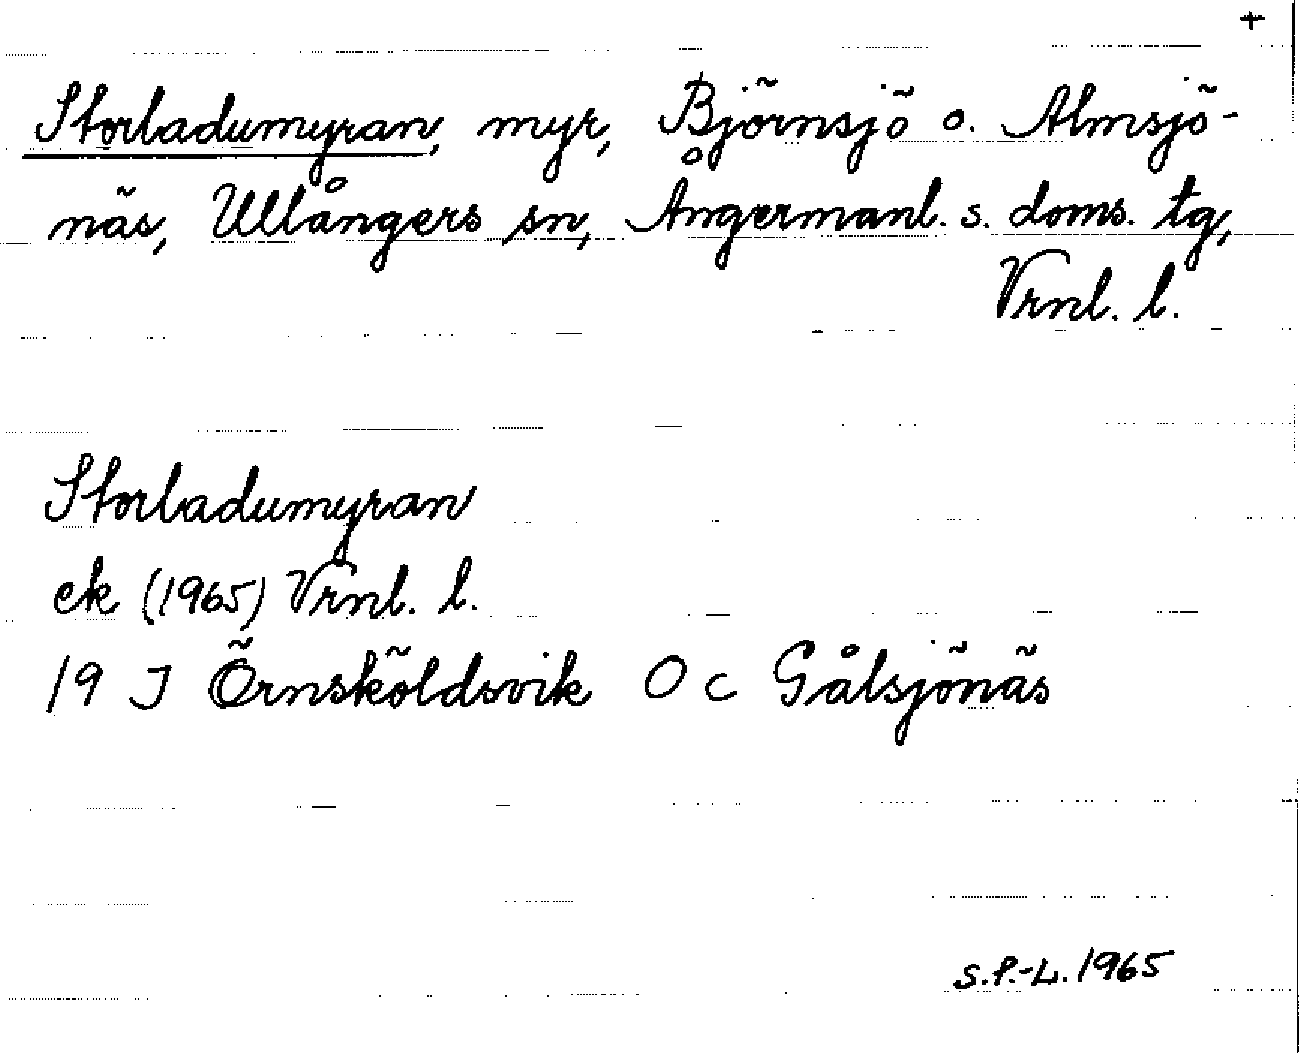 +
Storladumyran, myr, Björnsjö o. Almsjö-
näs, Ullångers sn, Ångermanl. s. doms. tg,
Vrnl. l.
Storladumyran
ek (1965) Vrnl. l.
19 J Örnsköldsvik O c Gålsjönäs
S.P.-L. 1965